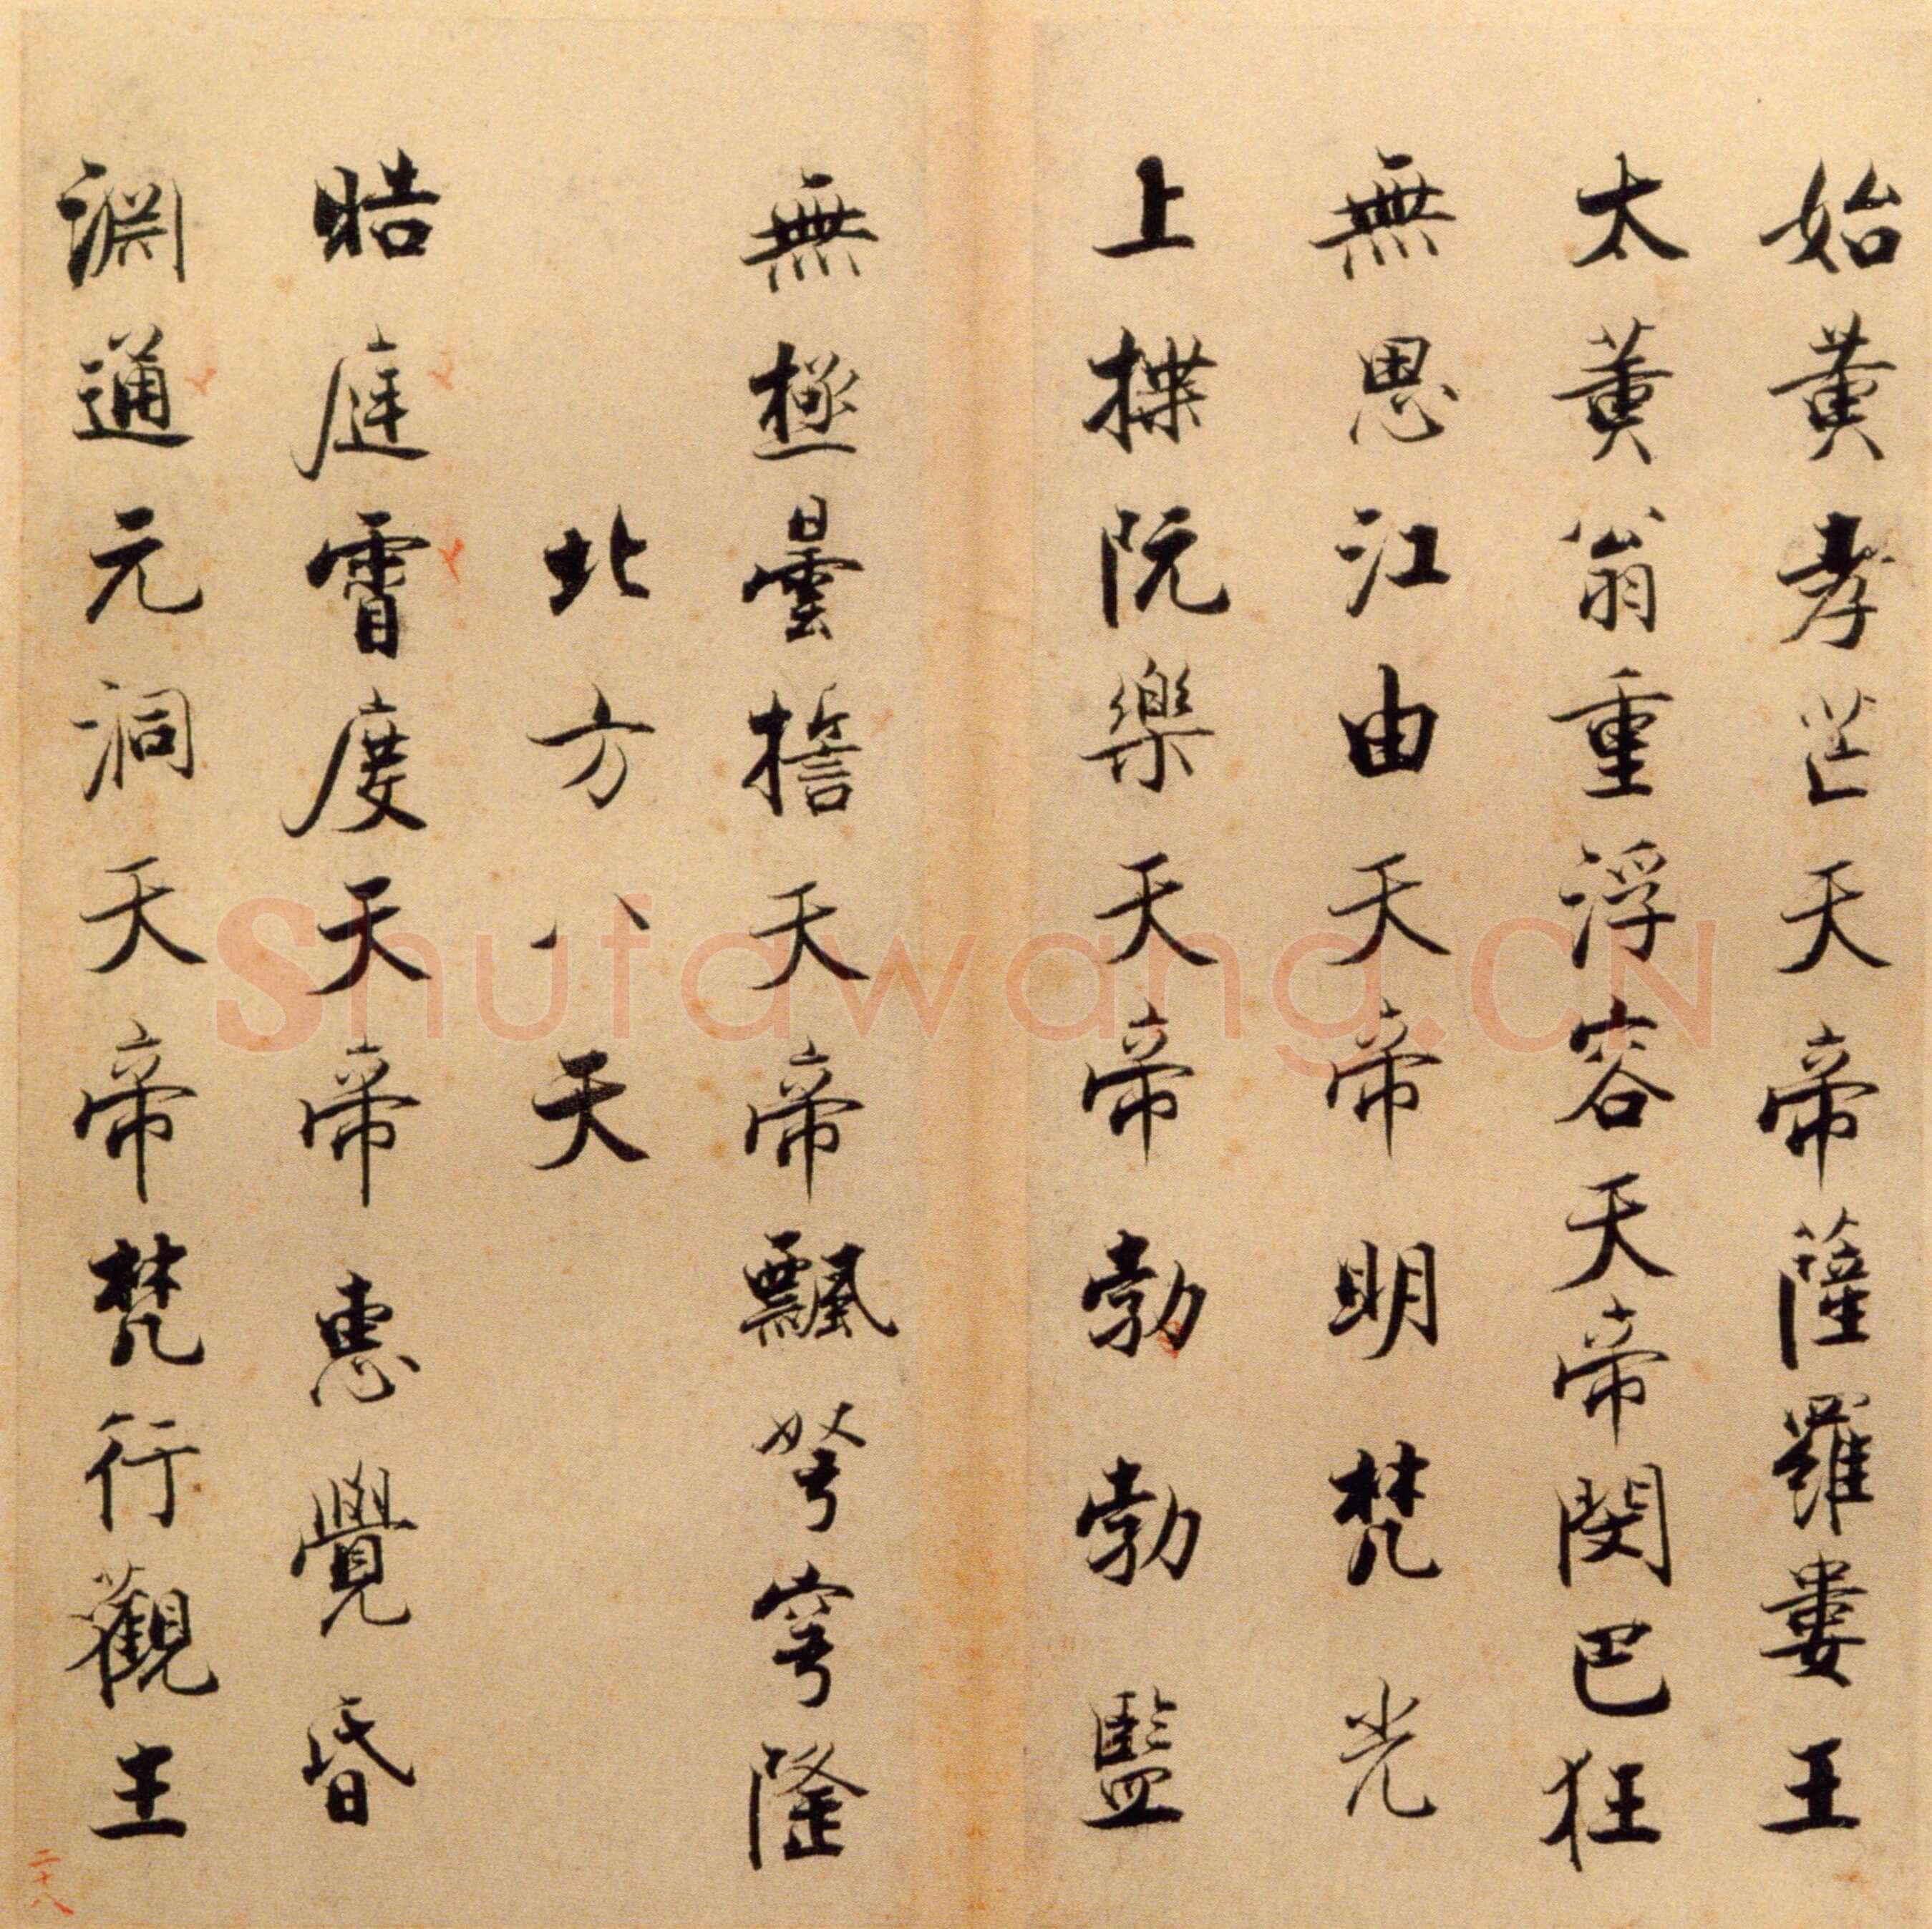 始黄孝芒天帝薩羅婁王
太黄翁重浮容天帝閔巴狂
無思江由天帝明梵光
上揲阮樂天帝勃勃監
無極曇誓天帝飄弩穹隆
北方八天
皓庭霄度天帝惠覺昏
淵通元洞天帝梵行觀生
二十八
Shufawang.CN